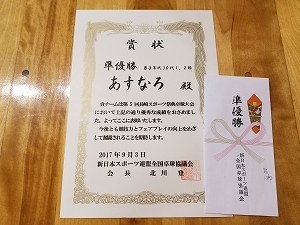 賞状
準優勝 男子年代30代1、2部
あすなろ 殿
貴チームは第5回長崎スポーツ祭典卓球大会
において上記の通り優秀な成績をおさめまし
た。よってここに表彰いたします
今後とも競技力とフェアプレイの向上をめざ
して活躍されることを期待します。
2017年9月3日
新日本スポーツ連盟全国卓球協議会
会長 北川 登
準優勝
新日本スポーツ連盟
全国卓球協議会